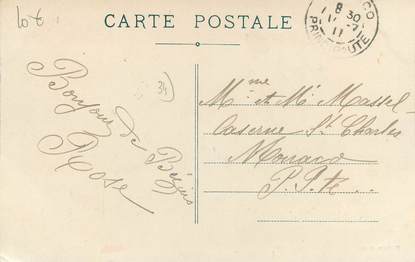 10 €
CARTE POSTALE
CO
8 30
11
PRINCIPAUTE
34
Bonjour
de Béziers
Rose
Mme et Mr Massel
Caserne St Charles
Monaco
P.pte.